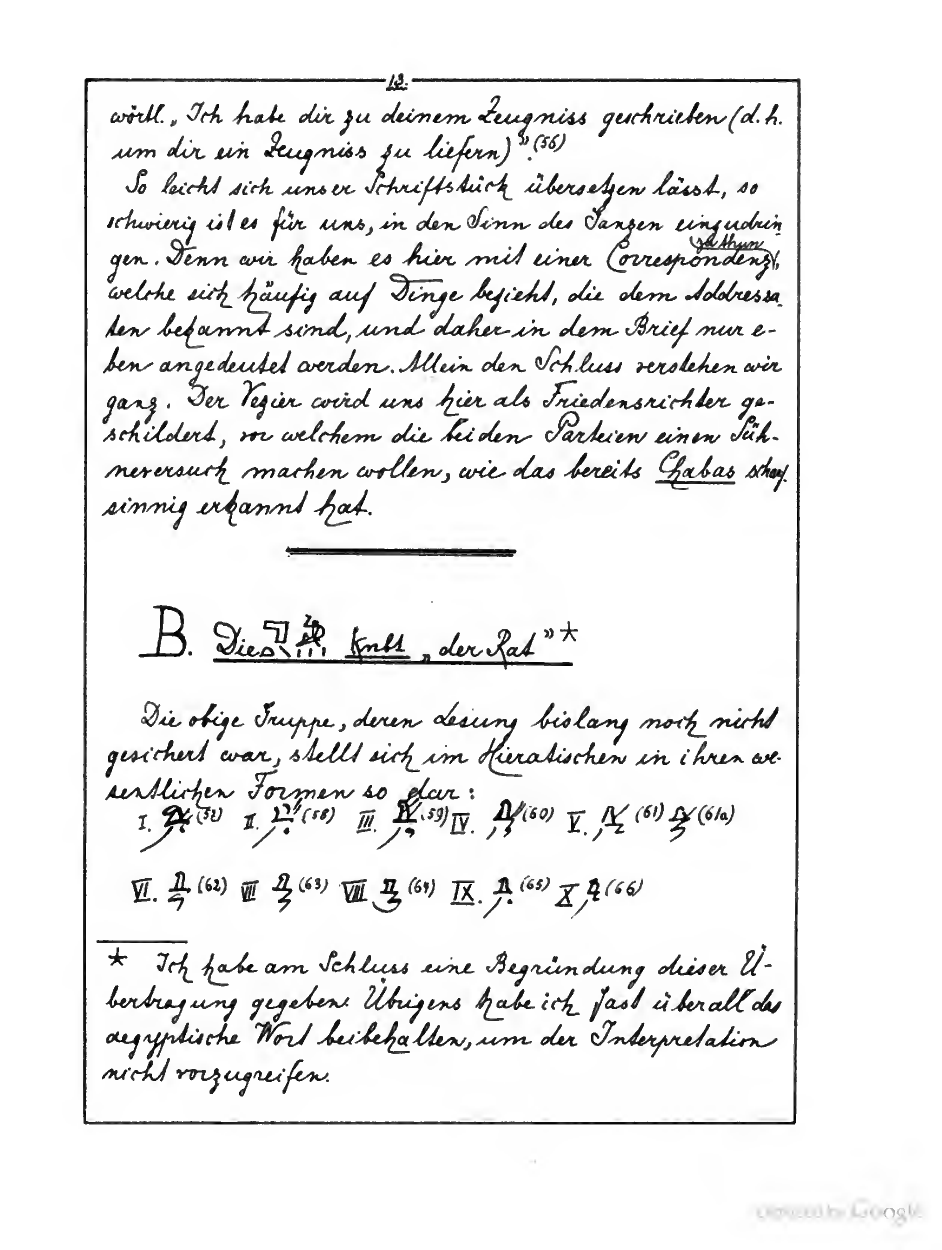 13.
wörtl. „Ich habe dir zu deinem Zeugniss geschrieben (d. h.
um dir ein Zeugniss zu liefern)”. (56)
So leicht sich unser Schriftstück übersetzen lässt, so
schwierig ist es für uns, in den Sinn des Ganzen einzudrin
gen. Denn wir haben es hier mit einer Correspondenz zu thun,
welche sich häufig auf Dinge bezieht, die dem Addressa-
ten bekannt sind, und daher in dem Brief nur e-
ben angedeutet werden. Allein den Schluss verstehen wir
ganz. Der Vezier wird uns hier als Friedensrichter ge-
schildert, vor welchem die beiden Parteien einen Süh-
neversuch machen wollen, wie das bereits Chabas scharf
sinnig erkannt hat.
B. Die Knbt „der Rat” *
Die obige Gruppe, deren Lesung bislang noch nicht
gesichert war, stellt sich im Hieratischen in ihren we-
sentlichen Formen so dar:
I. II. (58) III. (59) IV. (60) V. (61) (61a)
VI. (62) VII (63) VIII. (64) IX. (65) X (66)
* Ich habe am Schluss eine Begründung dieser Ü-
bertragung gegeben. Übrigens habe ich fast überall das
aegyptische Wort beibehalten, um der Interpretation
nicht vorzugreifen.
Digitized by Google